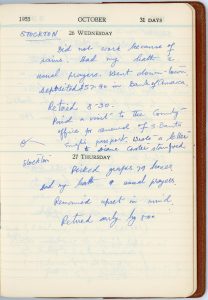 1955 OCTOBER 31 DAYS
STOCKTON 26 WEDNESDAY
Did not work because of
rains. Had my bath &
usual prayers. Went down-town
deposited $57.90 in Bank of America.
Retired 8-30.
Paid a visit to the County
office for renewal of
passport. Wrote a letter
to
Stockton 27 THURSDAY
Picked grapes 79 boxes
Had my bath & usual prayers.
Remained upset in mind.
Retired early by 8:00